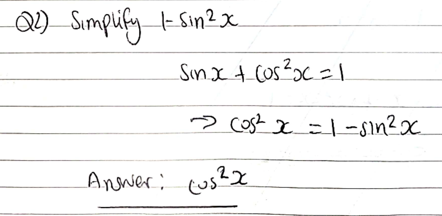 Q2) Simplify 1-sin²x
Sinx + cos²x = 1
→ cos² x = 1 - sin²x
Answer: cos²x